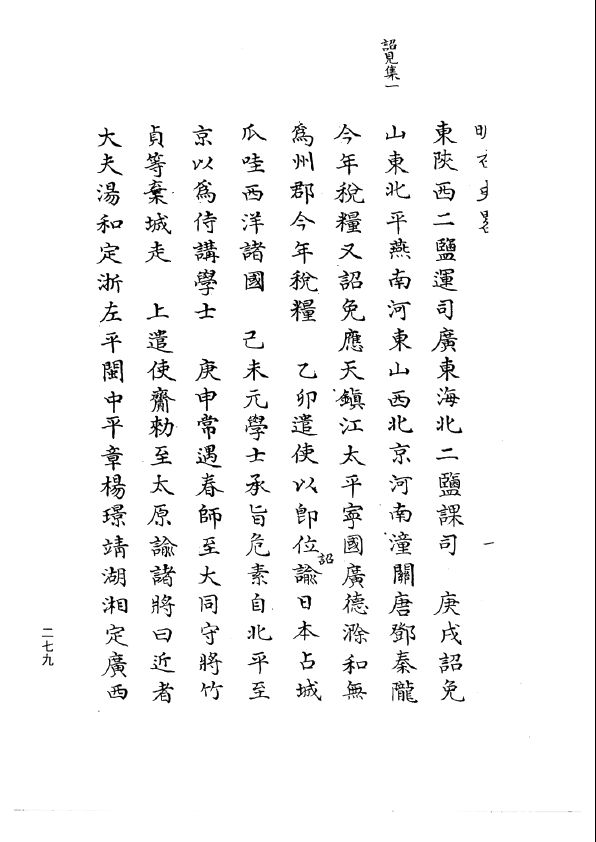 詔見集一
東陝西二鹽運司廣東海北二鹽課司　庚戌詔免
山東北平燕南河東山西北京河南潼關唐鄧秦隴
今年稅糧又詔免應天鎮江太平寧國廣德滁和無
為州郡今年稅糧　乙卯遣使以即位詔諭日本占城
瓜哇西洋諸國　己未元學士承旨危素自北平至
京以為侍講學士　庚申常遇春師至大同守將竹
貞等棄城走　上遣使齎勅至太原諭諸將曰近者
大夫湯和定浙左平閩中平章楊璟靖湖湘定廣西
一
二七九